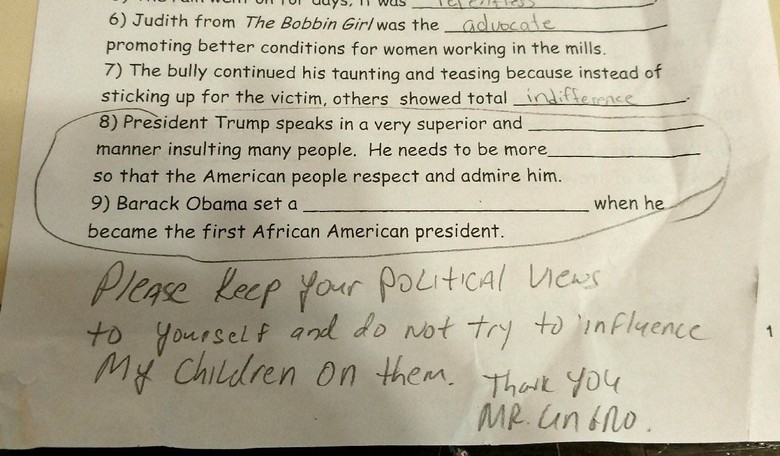 for days, it was relentless
6) Judith from The Bobbin Girl was the advocate
promoting better conditions for women working in the mills.
7) The bully continued his taunting and teasing because instead of
sticking up for the victim, others showed total indifference.
8) President Trump speaks in a very superior and
manner insulting many people. He needs to be more
so that the American people respect and admire him.
9) Barack Obama set a when he
became the first African American president.
Please keep your POLITICAL Views
to yourself and do not try to influence
My Children On them. Thank YOU
MR.
1